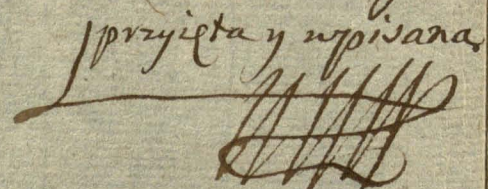 przyięta y wpisana.